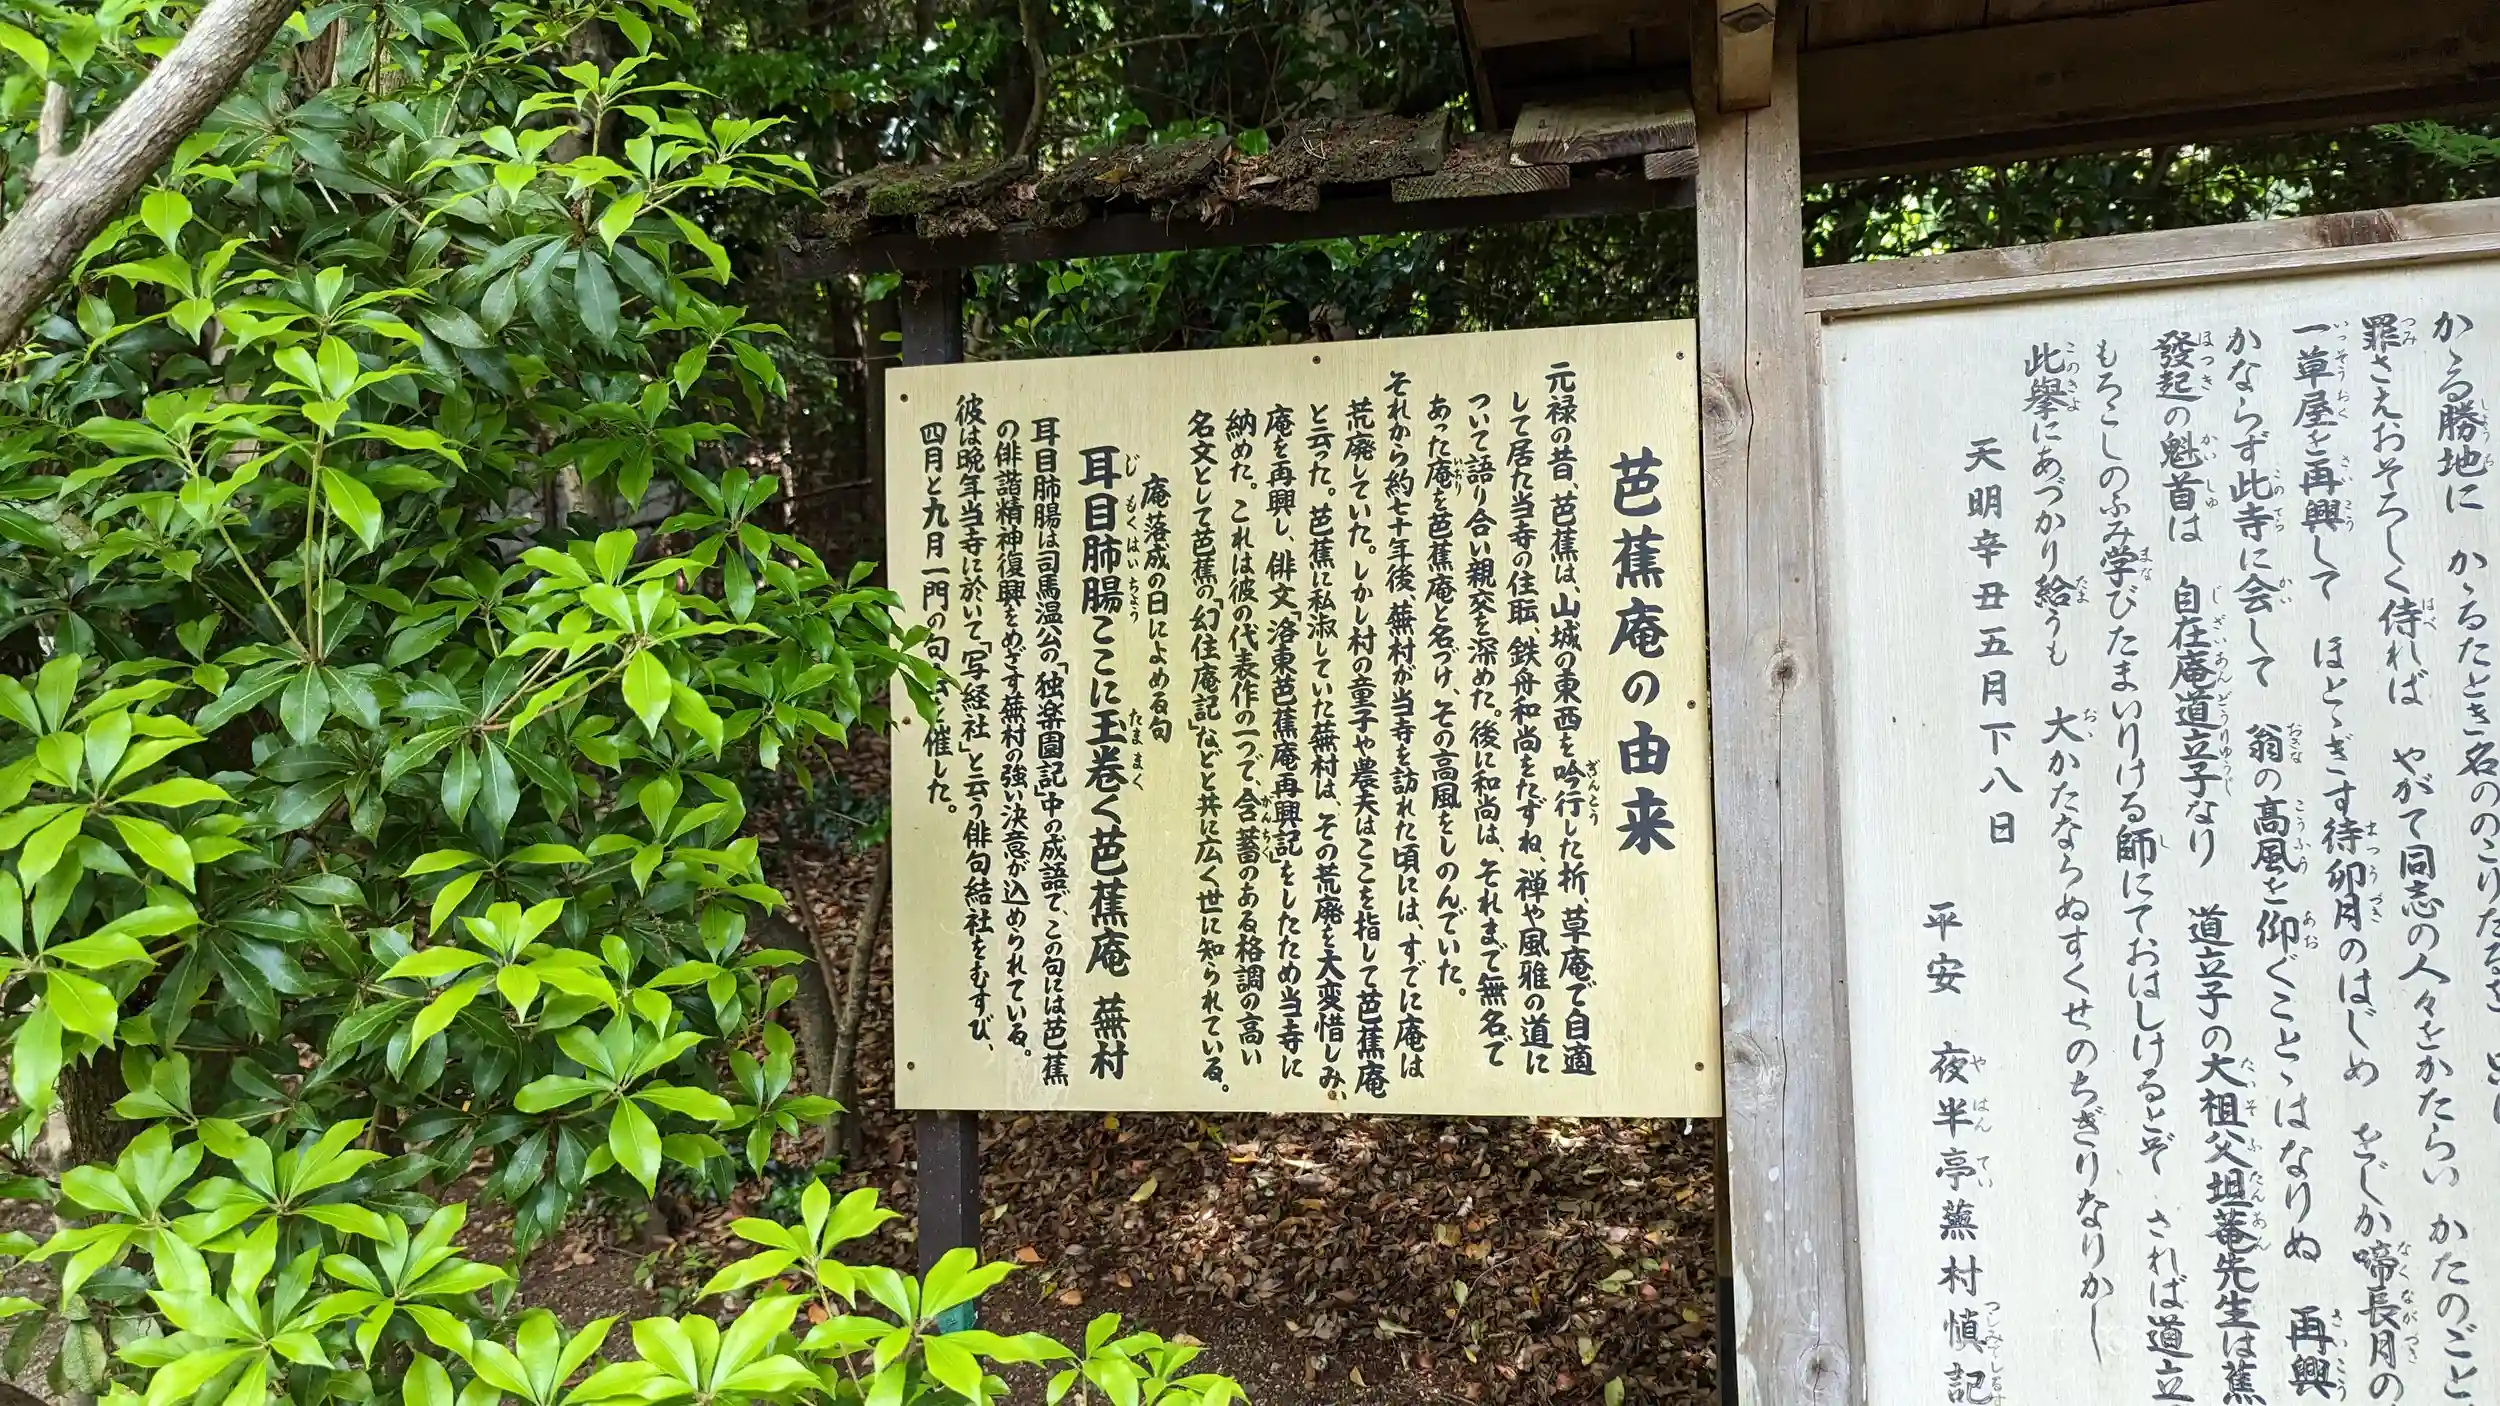 かゝる勝地に かゝるたとき名ののこりたるを
罪さえおそろしく侍れば やがて同志の人々をかたらい かたのごと
一草屋を再興して ほとゝぎす待卯月のはじめ をじか啼長月の
かならず此寺に会して 翁の高風を仰ぐことゝはなりぬ 再興
發起の魁首は 自在庵道立子なり 道立子の大祖父坦菴先生は蕉
もろこしのふみ学びたまいける師にておはしけるとぞ されば道立
此擧にあづかり給うも 大かたならぬすくせのちぎりなりかし
天明辛丑五月下八日
平安 夜半亭蕪村慎記
芭蕉庵の由来
元禄の昔、芭蕉は、山城の東西を吟行した折、草庵で自適
して居た当寺の住職、鉄舟和尚をたずね、禅や風雅の道に
ついて語り合い親交を深めた。後に和尚は、それまで無名で
あった庵を芭蕉庵と名づけ、その高風をしのんでいた。
それから約七十年後、蕪村が当寺を訪れた頃には、すでに庵は
荒廃していた。しかし村の童子や農夫はここを指して芭蕉庵
と云った。芭蕉に私淑していた蕪村は、その荒廃を大変惜しみ、
庵を再興し、俳文「洛東芭蕉庵再興記」をしたため当寺に
納めた。これは彼の代表作の一つで、含蓄のある格調の高い
名文として芭蕉の「幻住庵記」などと共に広く世に知られている。
庵落成の日によめる句
耳目肺腸ここに玉巻く芭蕉庵 蕪村
耳目肺腸は司馬温公の「独楽園記」中の成語で、この句には芭蕉
の俳諧精神復興をめざす蕪村の強い決意が込められている。
彼は晩年当寺に於いて「写経社」と云う俳句結社をむすび、
四月と九月一門の句 催した。